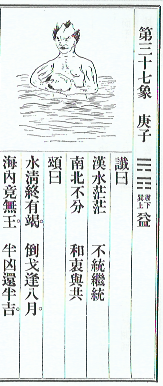 第三十七象 庚子 ䷩ 震下巽上 益
讖曰
漢水茫茫 不統繼統
南北不分 和衷與共
頌曰
水清終有竭。 倒戈逢八月。
海內竟無王。 半凶還半吉。